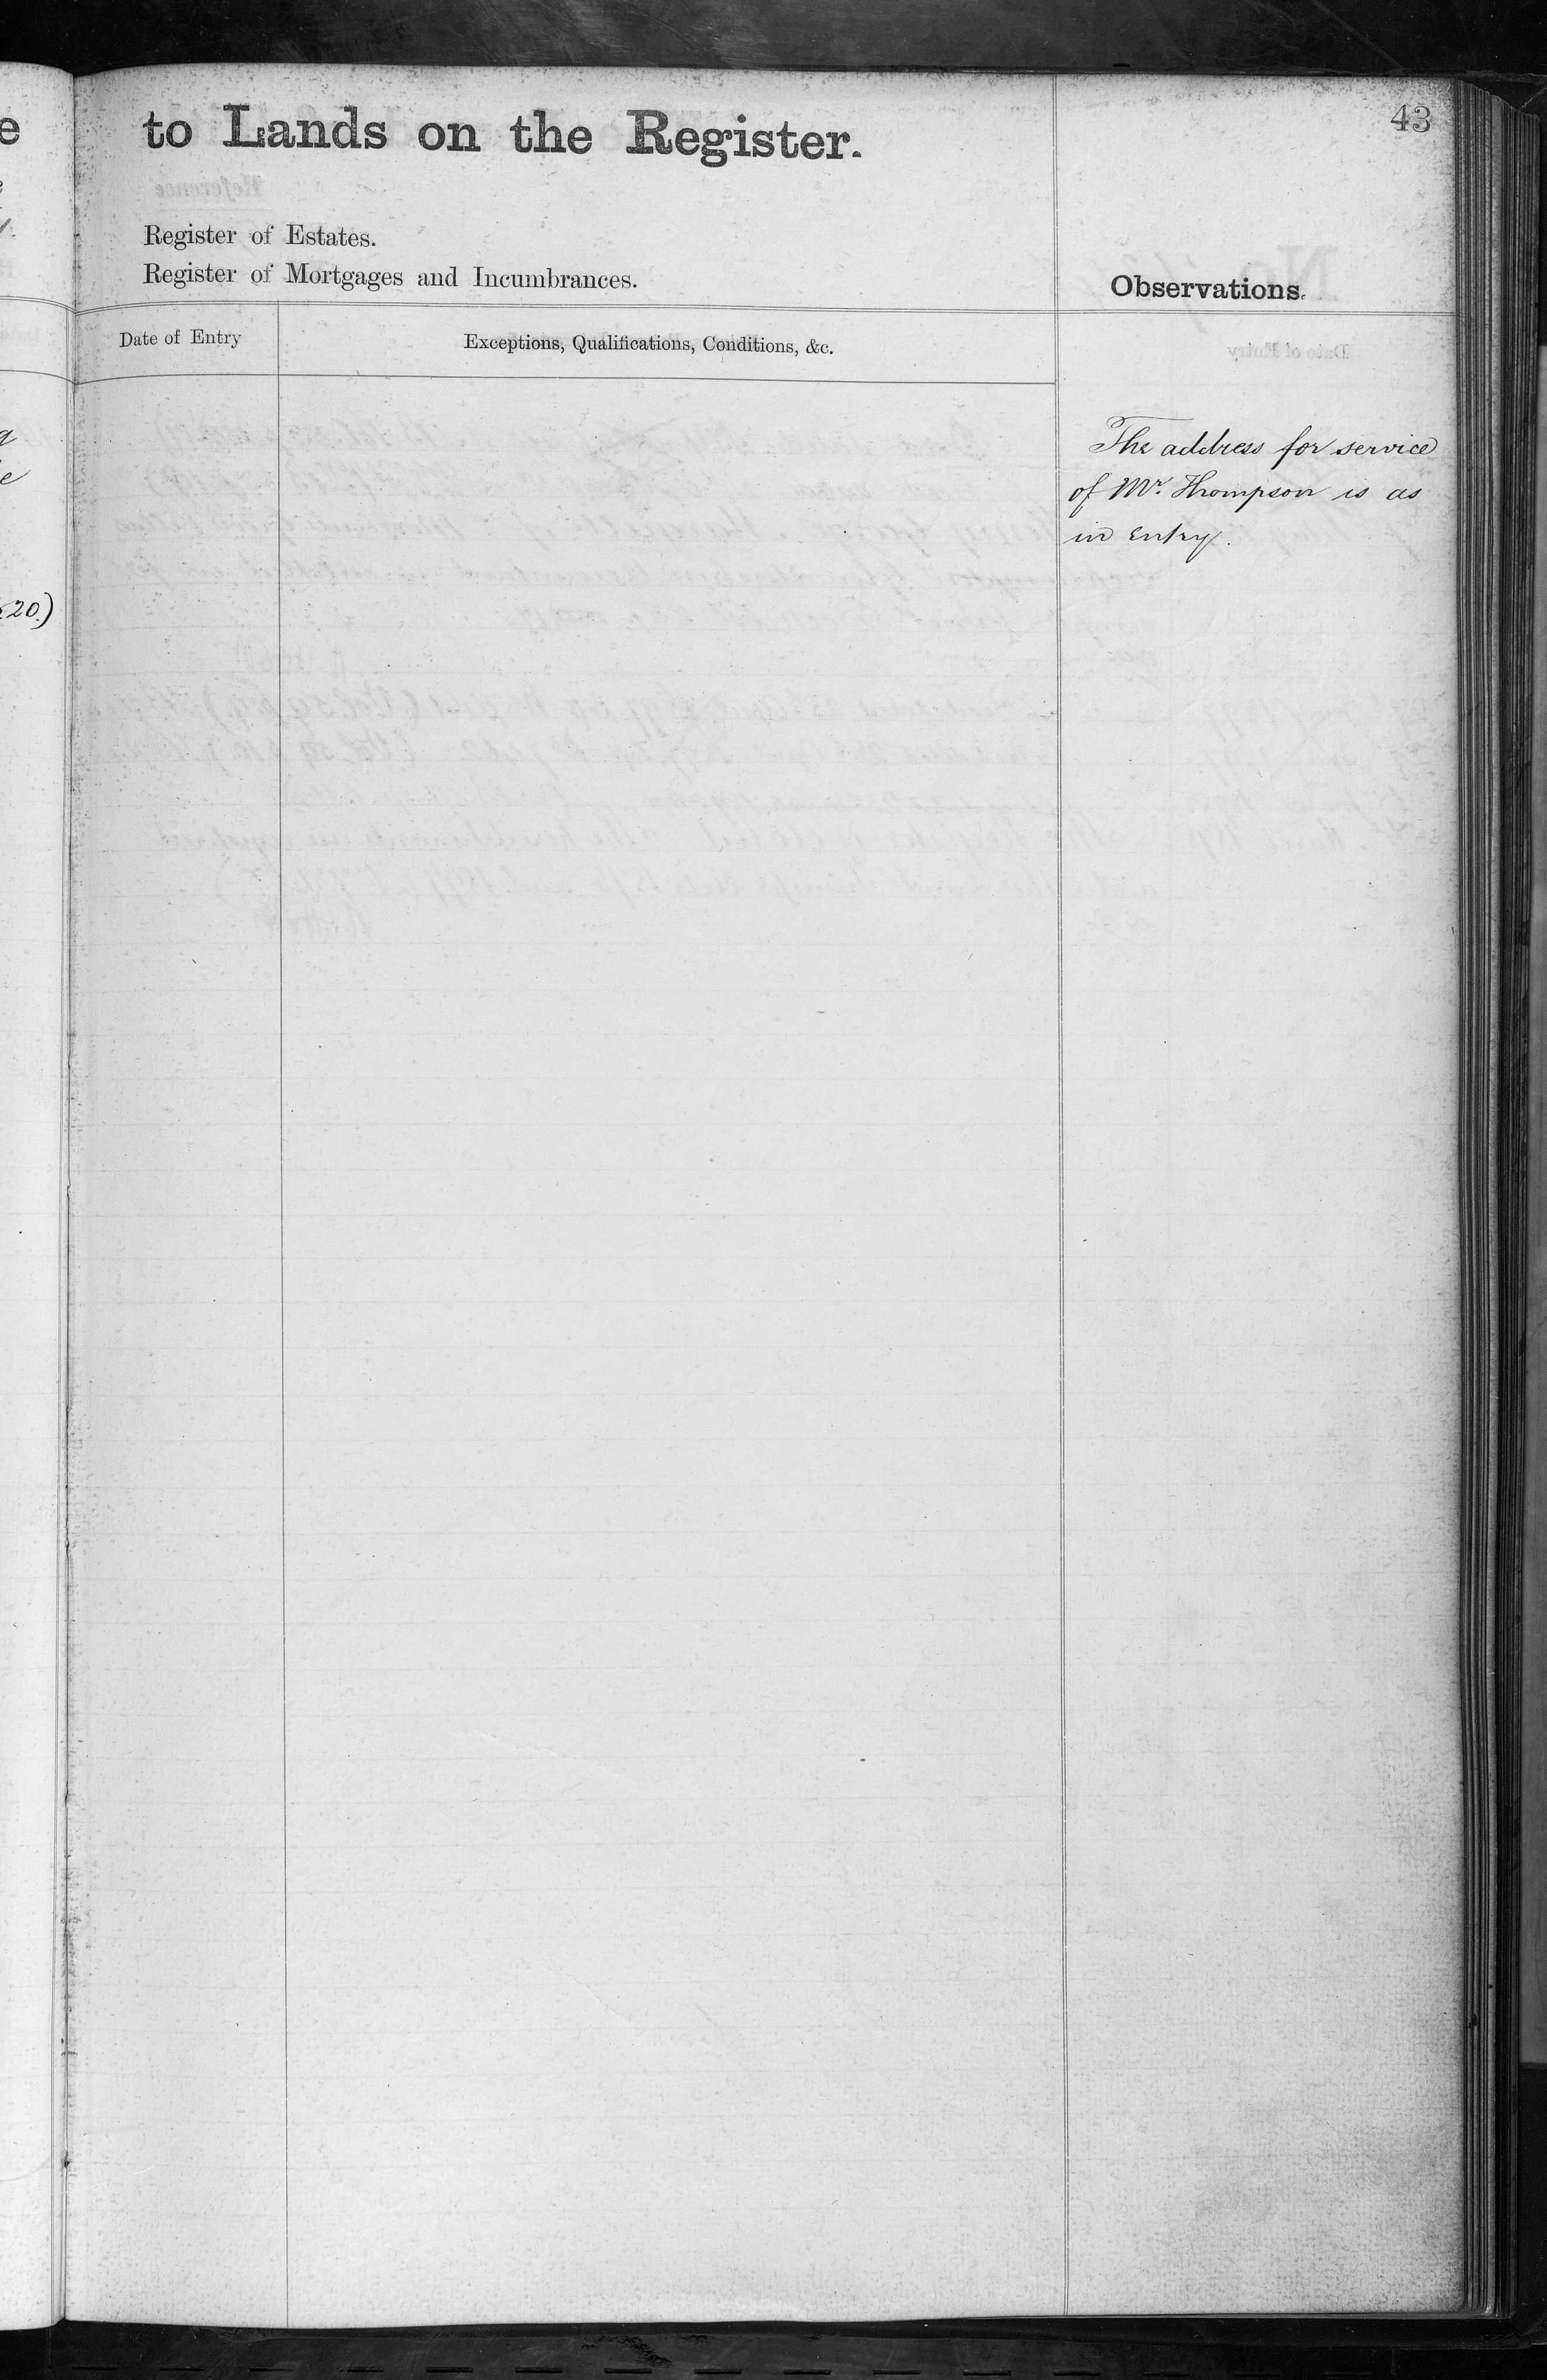 43
to Lands on the Register.
Register of Estates.
Register of Mortgages and Incumbrances.
Observations.
Date of Entry
Exceptions, Qualifications, Conditions, &c.
The address for service
of Mr. Thompson is as
in Entry.
20.)